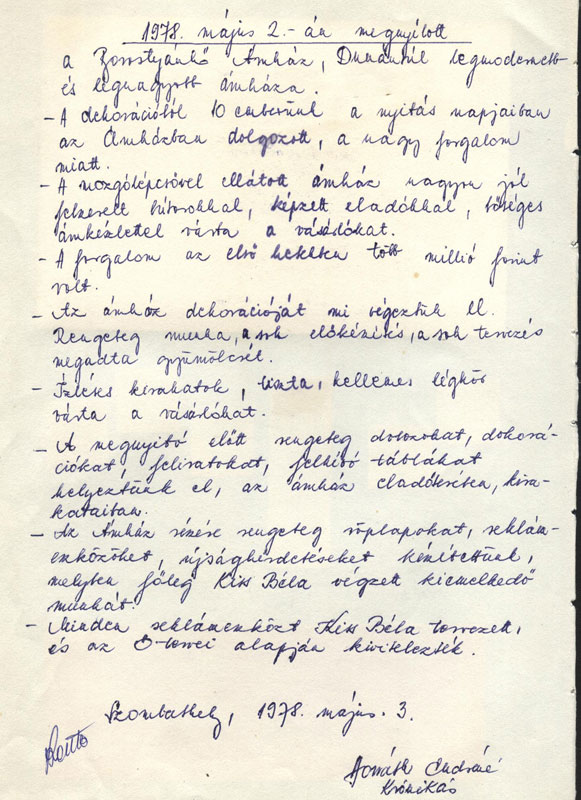 1978. május 2.-án megnyílott
a Borostyánkő Áruház, Dunántúl legmodernebb
és legnagyobb áruháza.
- A dekorációtól 10 emberünk a nyitás napjaiban
az Áruházban dolgozott, a nagy forgalom
miatt.
- A mozgólépcsővel ellátott áruház nagyon jól
felszerelt bútorokkal, képzett eladókkal, bőséges
árukészlettel várta a vásárlókat.
- A forgalom az első hetekben több millió forint
volt.
- Az áruház dekorációját mi végeztük el.
Rengeteg munka, a sok előkészítés, a sok tervezés
megadta gyümölcsét.
- Izléses kirakatok, tiszta, kellemes légkör
várta a vásárlókat.
- A megnyitó előtt rengeteg dobozokat, dekorá-
ciókat, feliratokat, felhívó táblákat
helyeztünk el, az áruház eladóterében, kira-
kataiban.
- Az Áruház részére rengeteg röplapokat, reklám-
eszközöket, újsághirdetéseket készítettünk,
melyben főleg Kiss Béla végzett kiemelkedő
munkát.
- Minden reklámeszközt Kiss Béla tervezett,
és az Ő tervei alapján kivitelezték.
Szombathely, 1978. május. 3.
Horváth Endréné
Krónikás